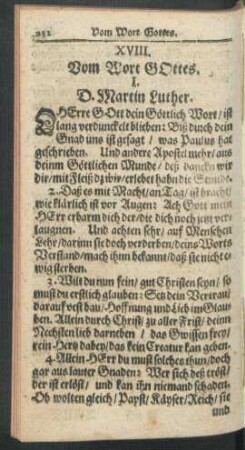 252 Vom Wort Gottes.
XVIII.
Vom Wort GOttes.
I.
D. Martin Luther.
O HErre GOtt dein Göttlich Wort / ist
lang verdunckelt blieben: Biß durch dein
Gnad uns ist gesagt / was Paulus hat
geschrieben. Und andere Apostel mehr / aus
deinm Göttlichen Munde / deß dancken wir
dir / mit Fleiß wir / erlebet habn die Stunde.
2. Daß es mit Macht / an Tag / ist bracht /
wie klärlich ist vor Augen: Ach Gott mein
HErr erbarm dich der / die dich noch jetzt ver-
laugnen. Und achten sehr / auf Menschen
Lehr / darinn sie doch verderben / deins Worts
Verstand / mach ihnn bekannt / daß sie nicht e-
wig sterben.
3. Wilt du nun fein / gut Christen seyn / so
must du erstlich glauben: Setz dein Vertrau /
darauf vest bau / Hoffnung und Lieb im Glau-
ben. Allein durch Christ / zu aller Frist / deinn
Nechsten lieb darneben / das Gwissen frey /
rein Hertz dabey / das kein Creatur kan geben.
4. Allein HErr du must solches thun / doch
gar aus lauter Gnaden: Wer sich deß tröst /
der ist erlöst / und kan ihn niemand schaden.
Ob wolten gleich / Papst / Käyser / Reich / sie
und